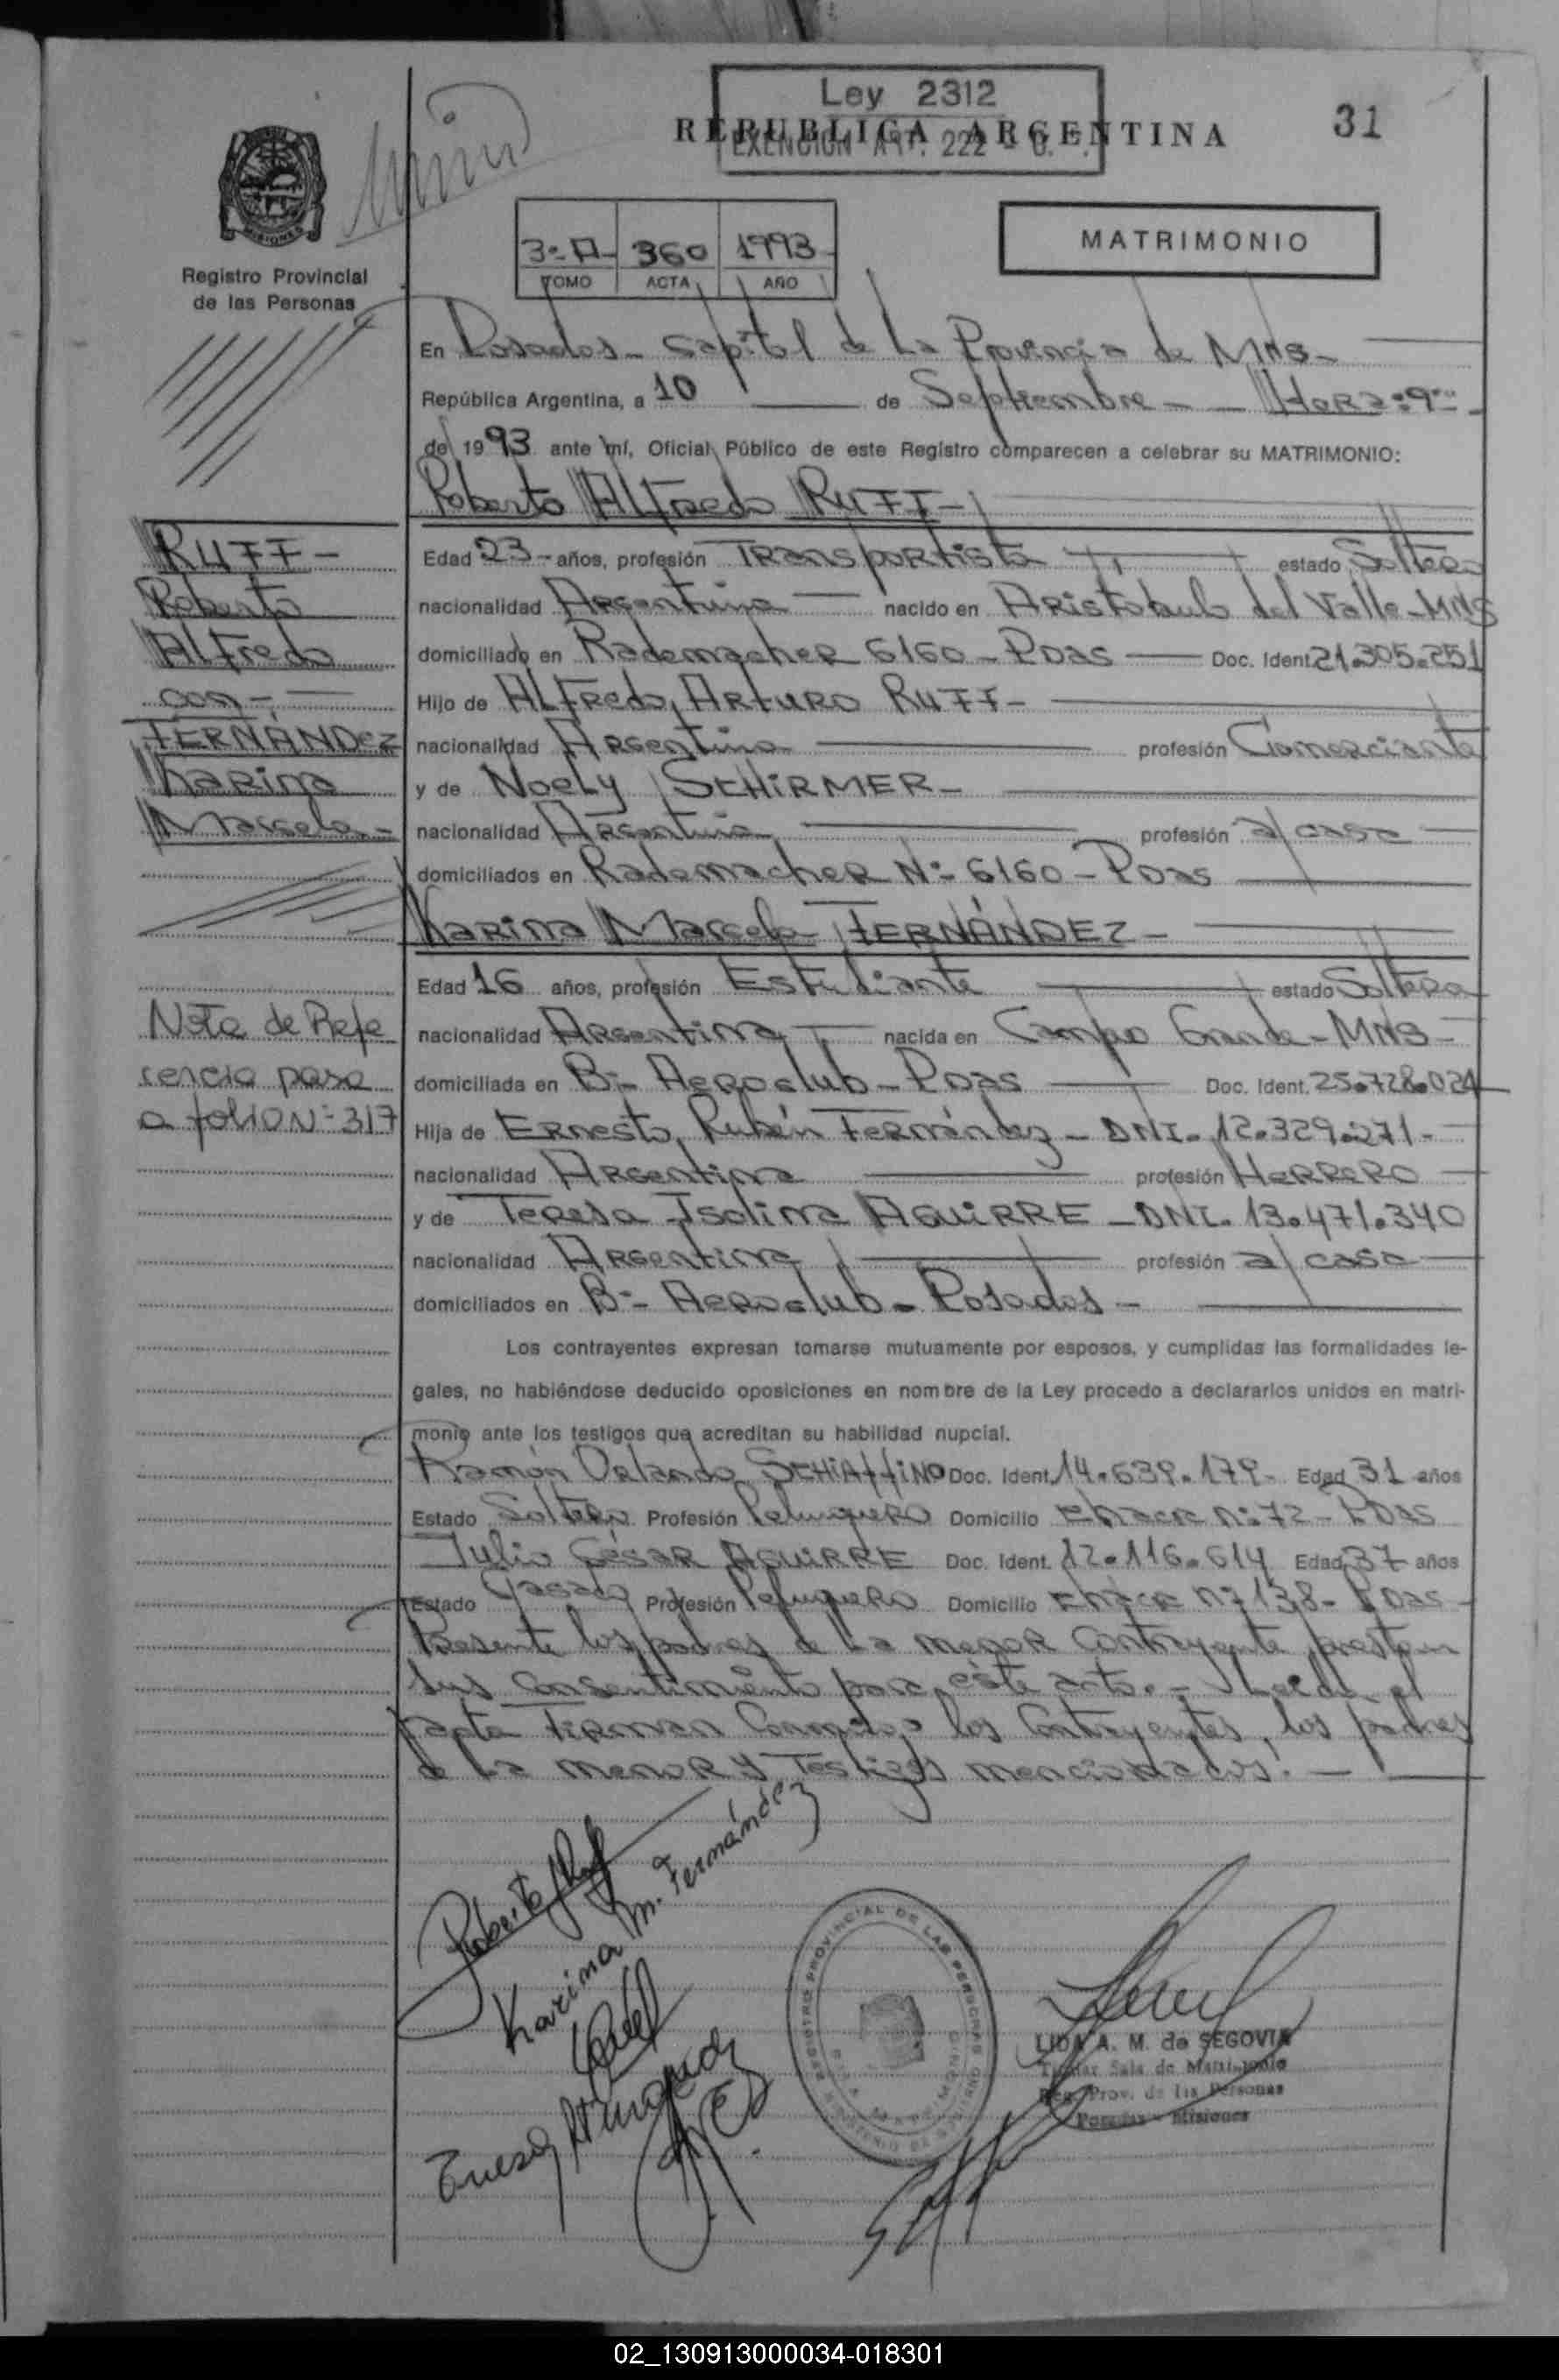 Ley 2312
REPUBLICA ARGENTINA
EXENCION ART. 222
31
MISIONES
Registro Provincial
de las Personas
3º A- 360 1993
TOMO ACTA AÑO
MATRIMONIO
En Posadas - Capital de La Provincia de MNS-
República Argentina, a 10 de Septiembre - Hora: 9
de 1993 ante mí, Oficial Público de este Registro comparecen a celebrar su MATRIMONIO:
Roberto Alfredo RUFF-
RUFF-
Roberto
Alfredo
con-
FERNÁNDEZ
Karina
Marcela.-
Edad 23- años, profesión Transportista estado Soltero
nacionalidad Argentina nacido en Aristóbulo del Valle-MNS
domiciliado en Rademacher 6160 - Pdas Doc. Ident. 21.305.251
Hijo de Alfredo Arturo RUFF-
nacionalidad Argentina profesión Comerciante
y de Noely SCHIRMER-
nacionalidad Argentina profesión a/casa
domiciliados en Rademacher Nº 6160 - Pdas
Karina Marcela FERNÁNDEZ-
Edad 16 años, profesión Estudiante estado Soltera
nacionalidad Argentina nacida en Campo Grande-MNS-
domiciliada en Bº- Aeroclub-Pdas Doc. Ident. 25.728.024
Hija de Ernesto Rubén Fernández - DNI. 12.329.271.-
nacionalidad Argentina profesión Herrero
y de Teresa Isolina AGUIRRE - DNI. 13.471.340
nacionalidad Argentina profesión a/casa
domiciliados en Bº- Aeroclub - Posadas -
Nota de Refe
rencia pasa
a folio Nº 317
Los contrayentes expresan tomarse mutuamente por esposos, y cumplidas las formalidades le-
gales, no habiéndose deducido oposiciones en nombre de la Ley procedo a declararlos unidos en matri-
monio ante los testigos que acreditan su habilidad nupcial.
Ramón Orlando SCHIAFFINO Doc. Ident. 14.639.179- Edad 31 años
Estado Soltero Profesión Peluquero Domicilio Chacra Nº 72 - Pdas
Julio César AGUIRRE Doc. Ident. 12.116.614 Edad 37 años
Estado Casado Profesión Peluquero Domicilio Chacra Nº 138- Pdas-
Presente los padres de la menor contrayente prestan
sus consentimiento para este acto.- Leída el
acta firman conmigo los contrayentes, los padres
de la menor y testigos mencionados.-
Roberto Ruff
Karina M. Fernández
REGISTRO PROVINCIAL DE LAS PERSONAS
LIDA A. M. de SEGOVIA
Titular Sala de Matrimonio
Reg. Prov. de las Personas
Posadas - Misiones
02_130913000034-018301